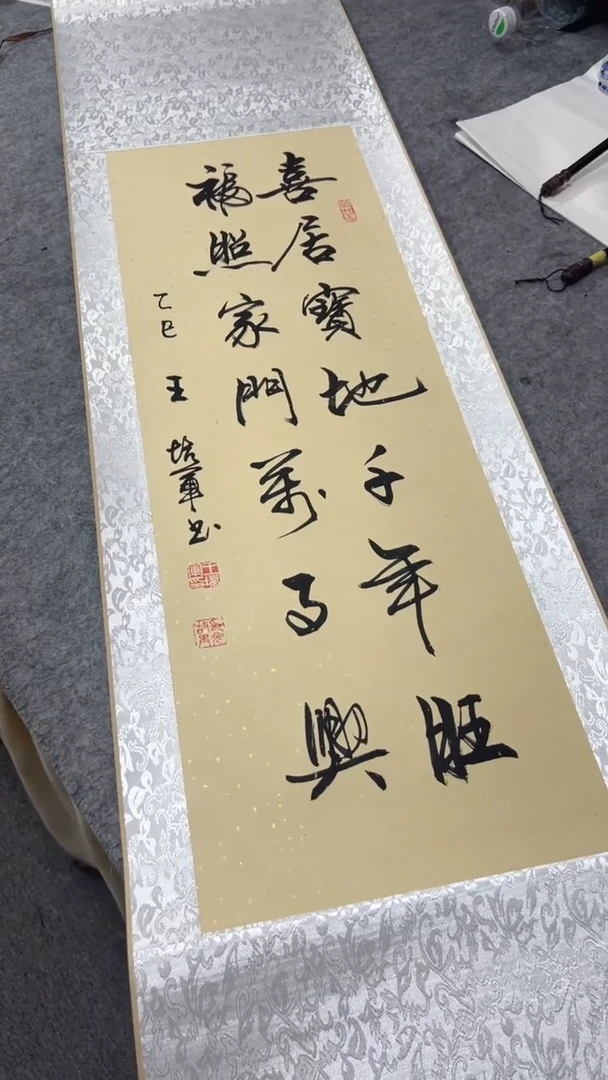 喜居寶地千年旺
福照家門萬事興
乙巳 王培軍书